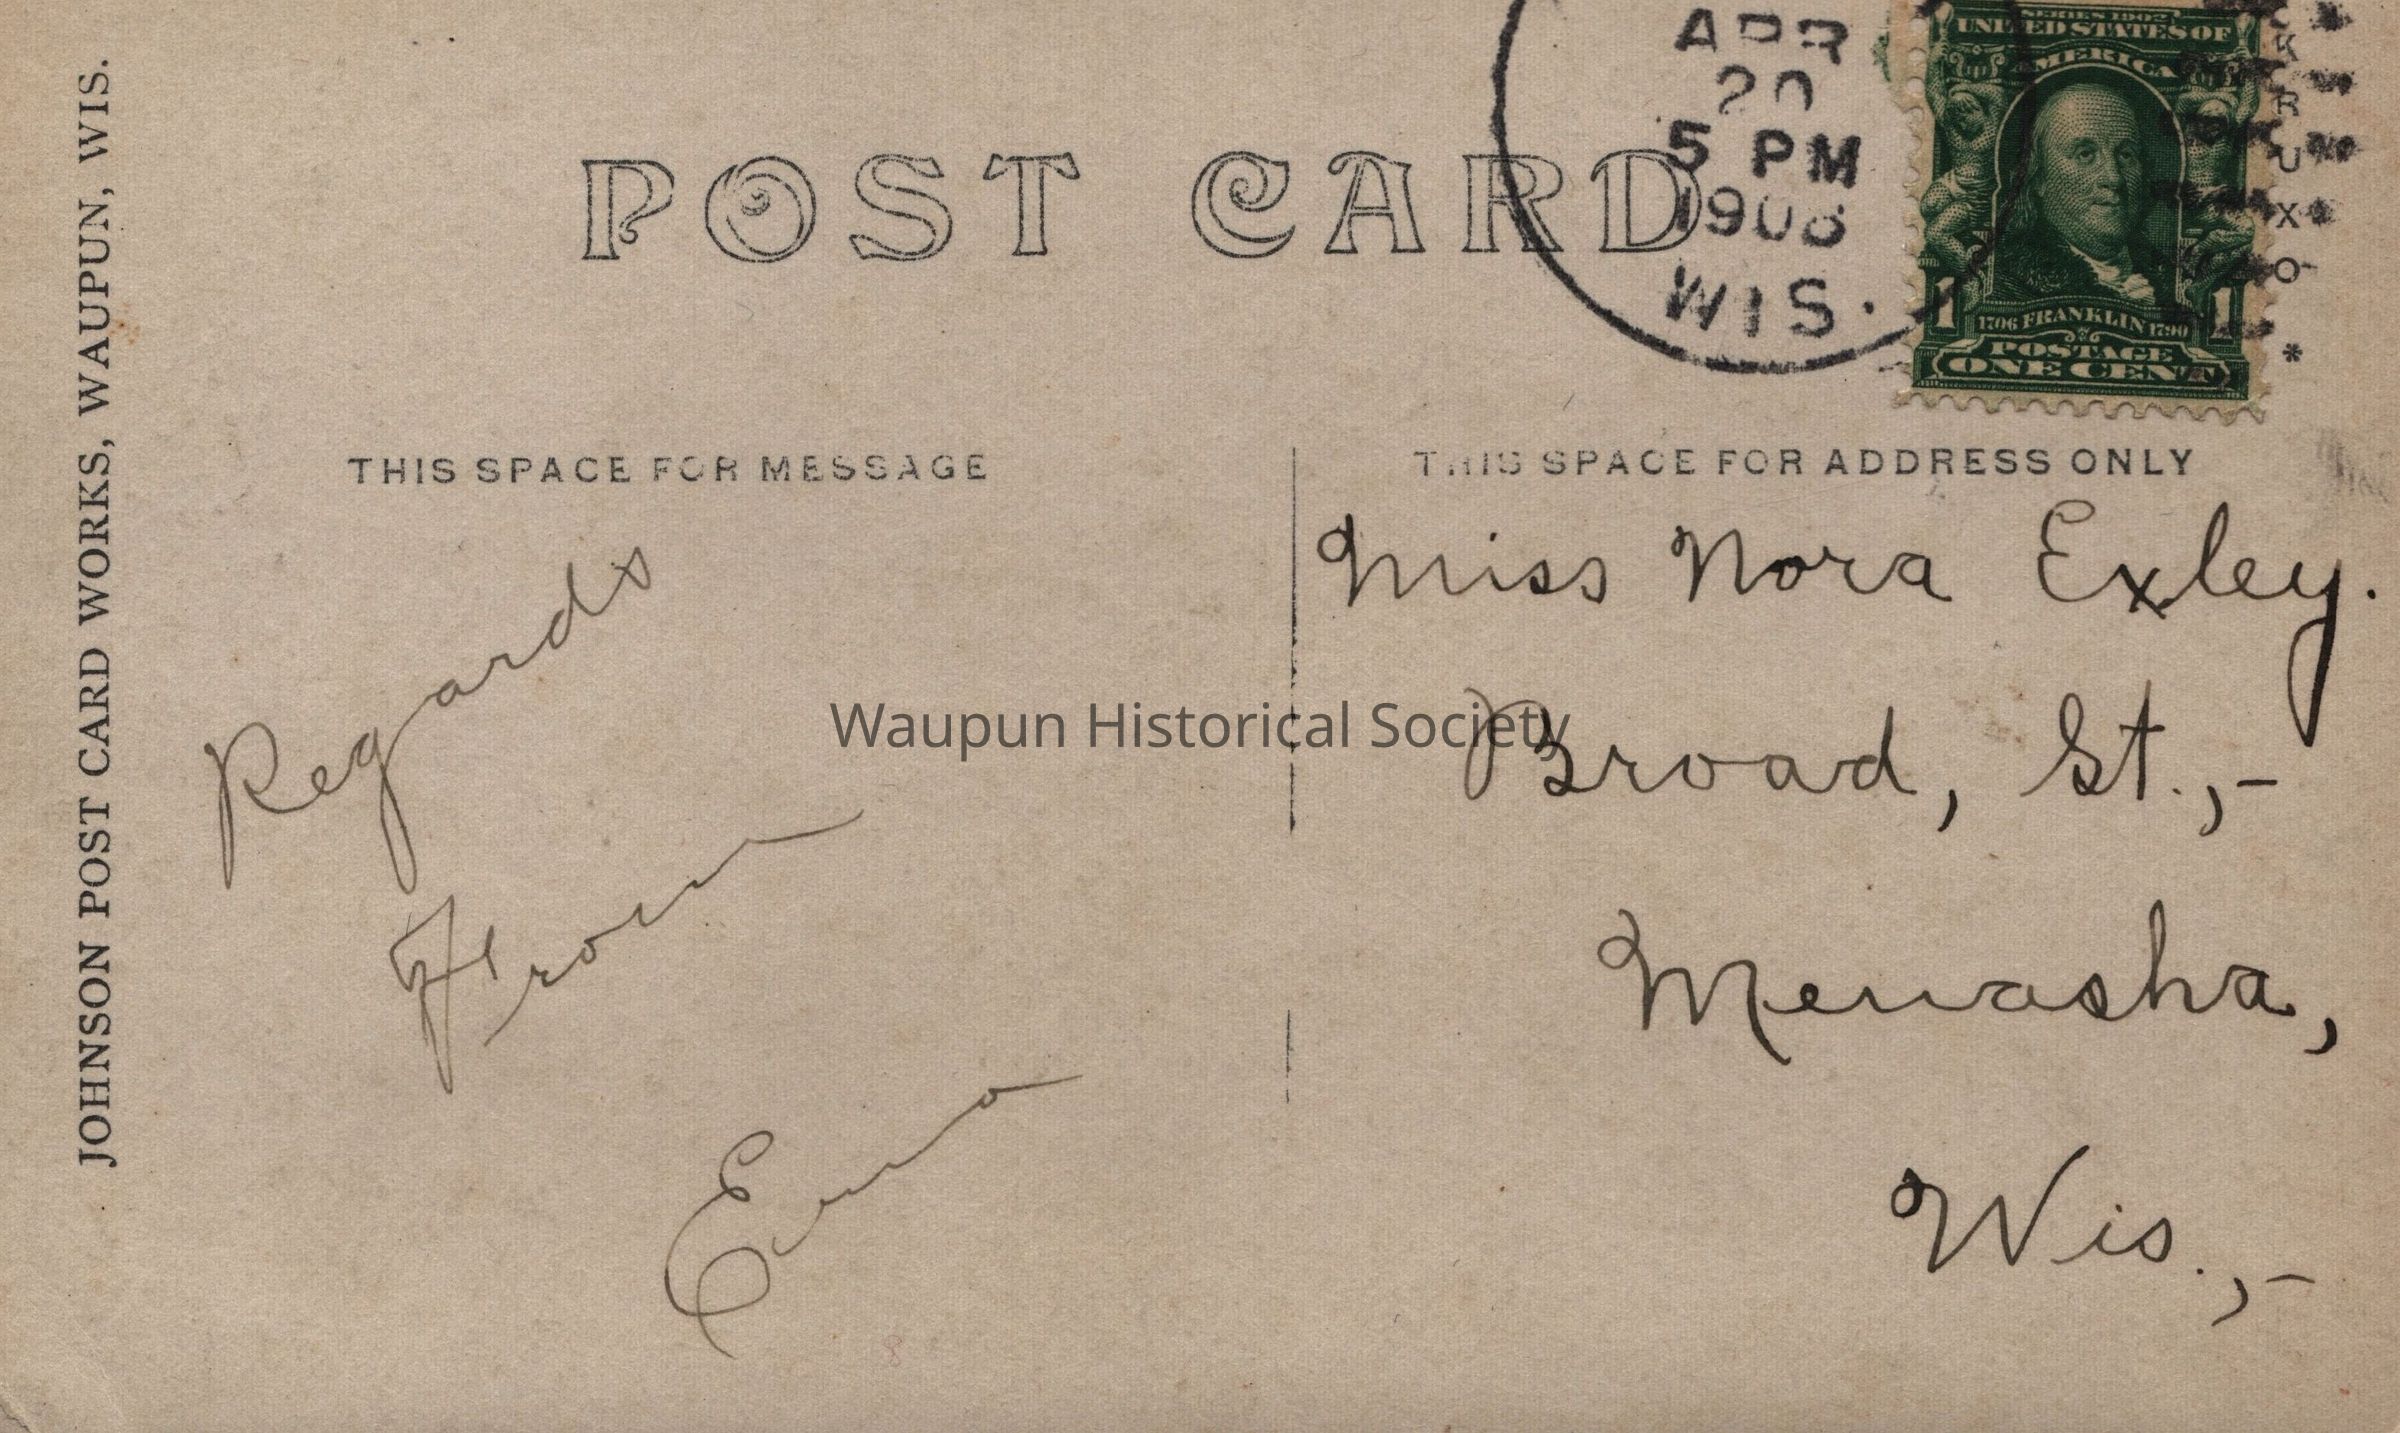 JOHNSON POST CARD WORKS, WAUPUN, WIS.
POST CARD
APR
20
5 PM
1908
WIS.
SERIES 1902
UNITED STATES OF
AMERICA
1 1
1706 FRANKLIN 1790
POSTAGE
ONE CENT
K R U X O
THIS SPACE FOR MESSAGE
Regards
From
THIS SPACE FOR ADDRESS ONLY
Miss Nora Exley.
Broad, St.,-
Menasha,
Wis.,-
Waupun Historical Society